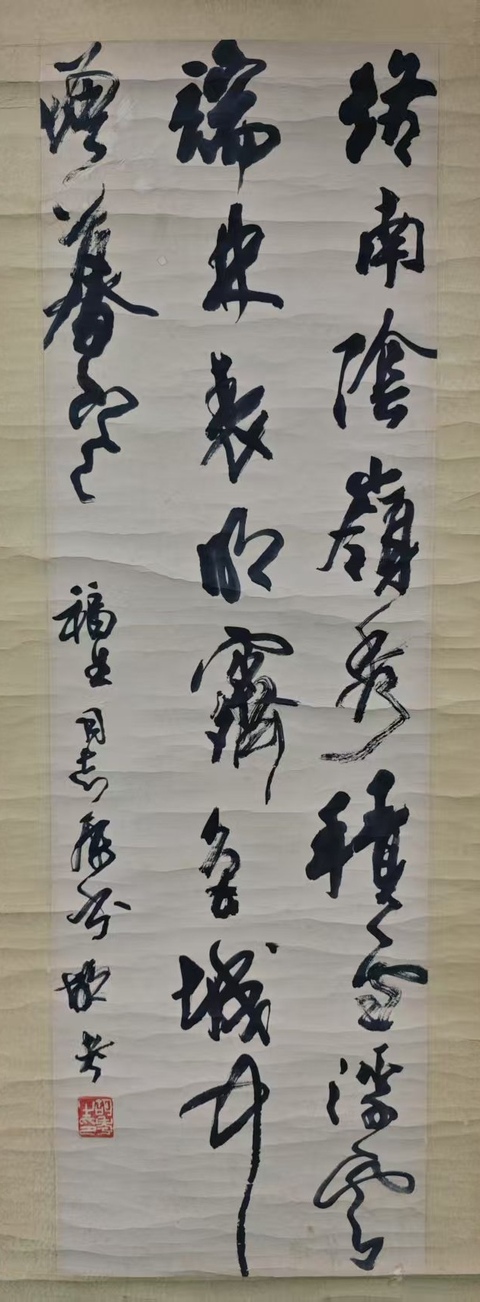 終南陰嶺秀積雪浮雲
端林表明霽色城中
增暮寒
福生同志 胡考